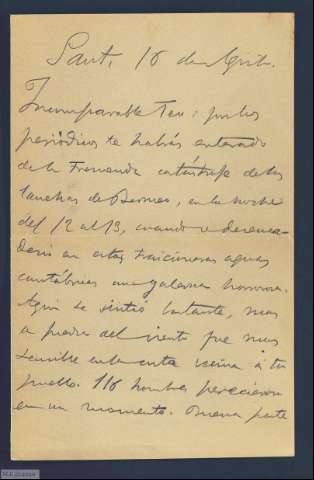 Sant. 16 de Agto.
Incomparable Teo: por los
periódicos te habrás enterado
de la Tremenda catástrofe de las
lanchas de Bermeo, en la noche
del 12 al 13, cuando se desenca-
denó en estas traicioneras aguas
cantábricas una galerna horrorosa.
Aquí se sintió bastante, mas
a pesar del viento fue mas
sensible en la costa vecina á tu
pueblo. 116 hombres perecieron
en un momento. Buena parte